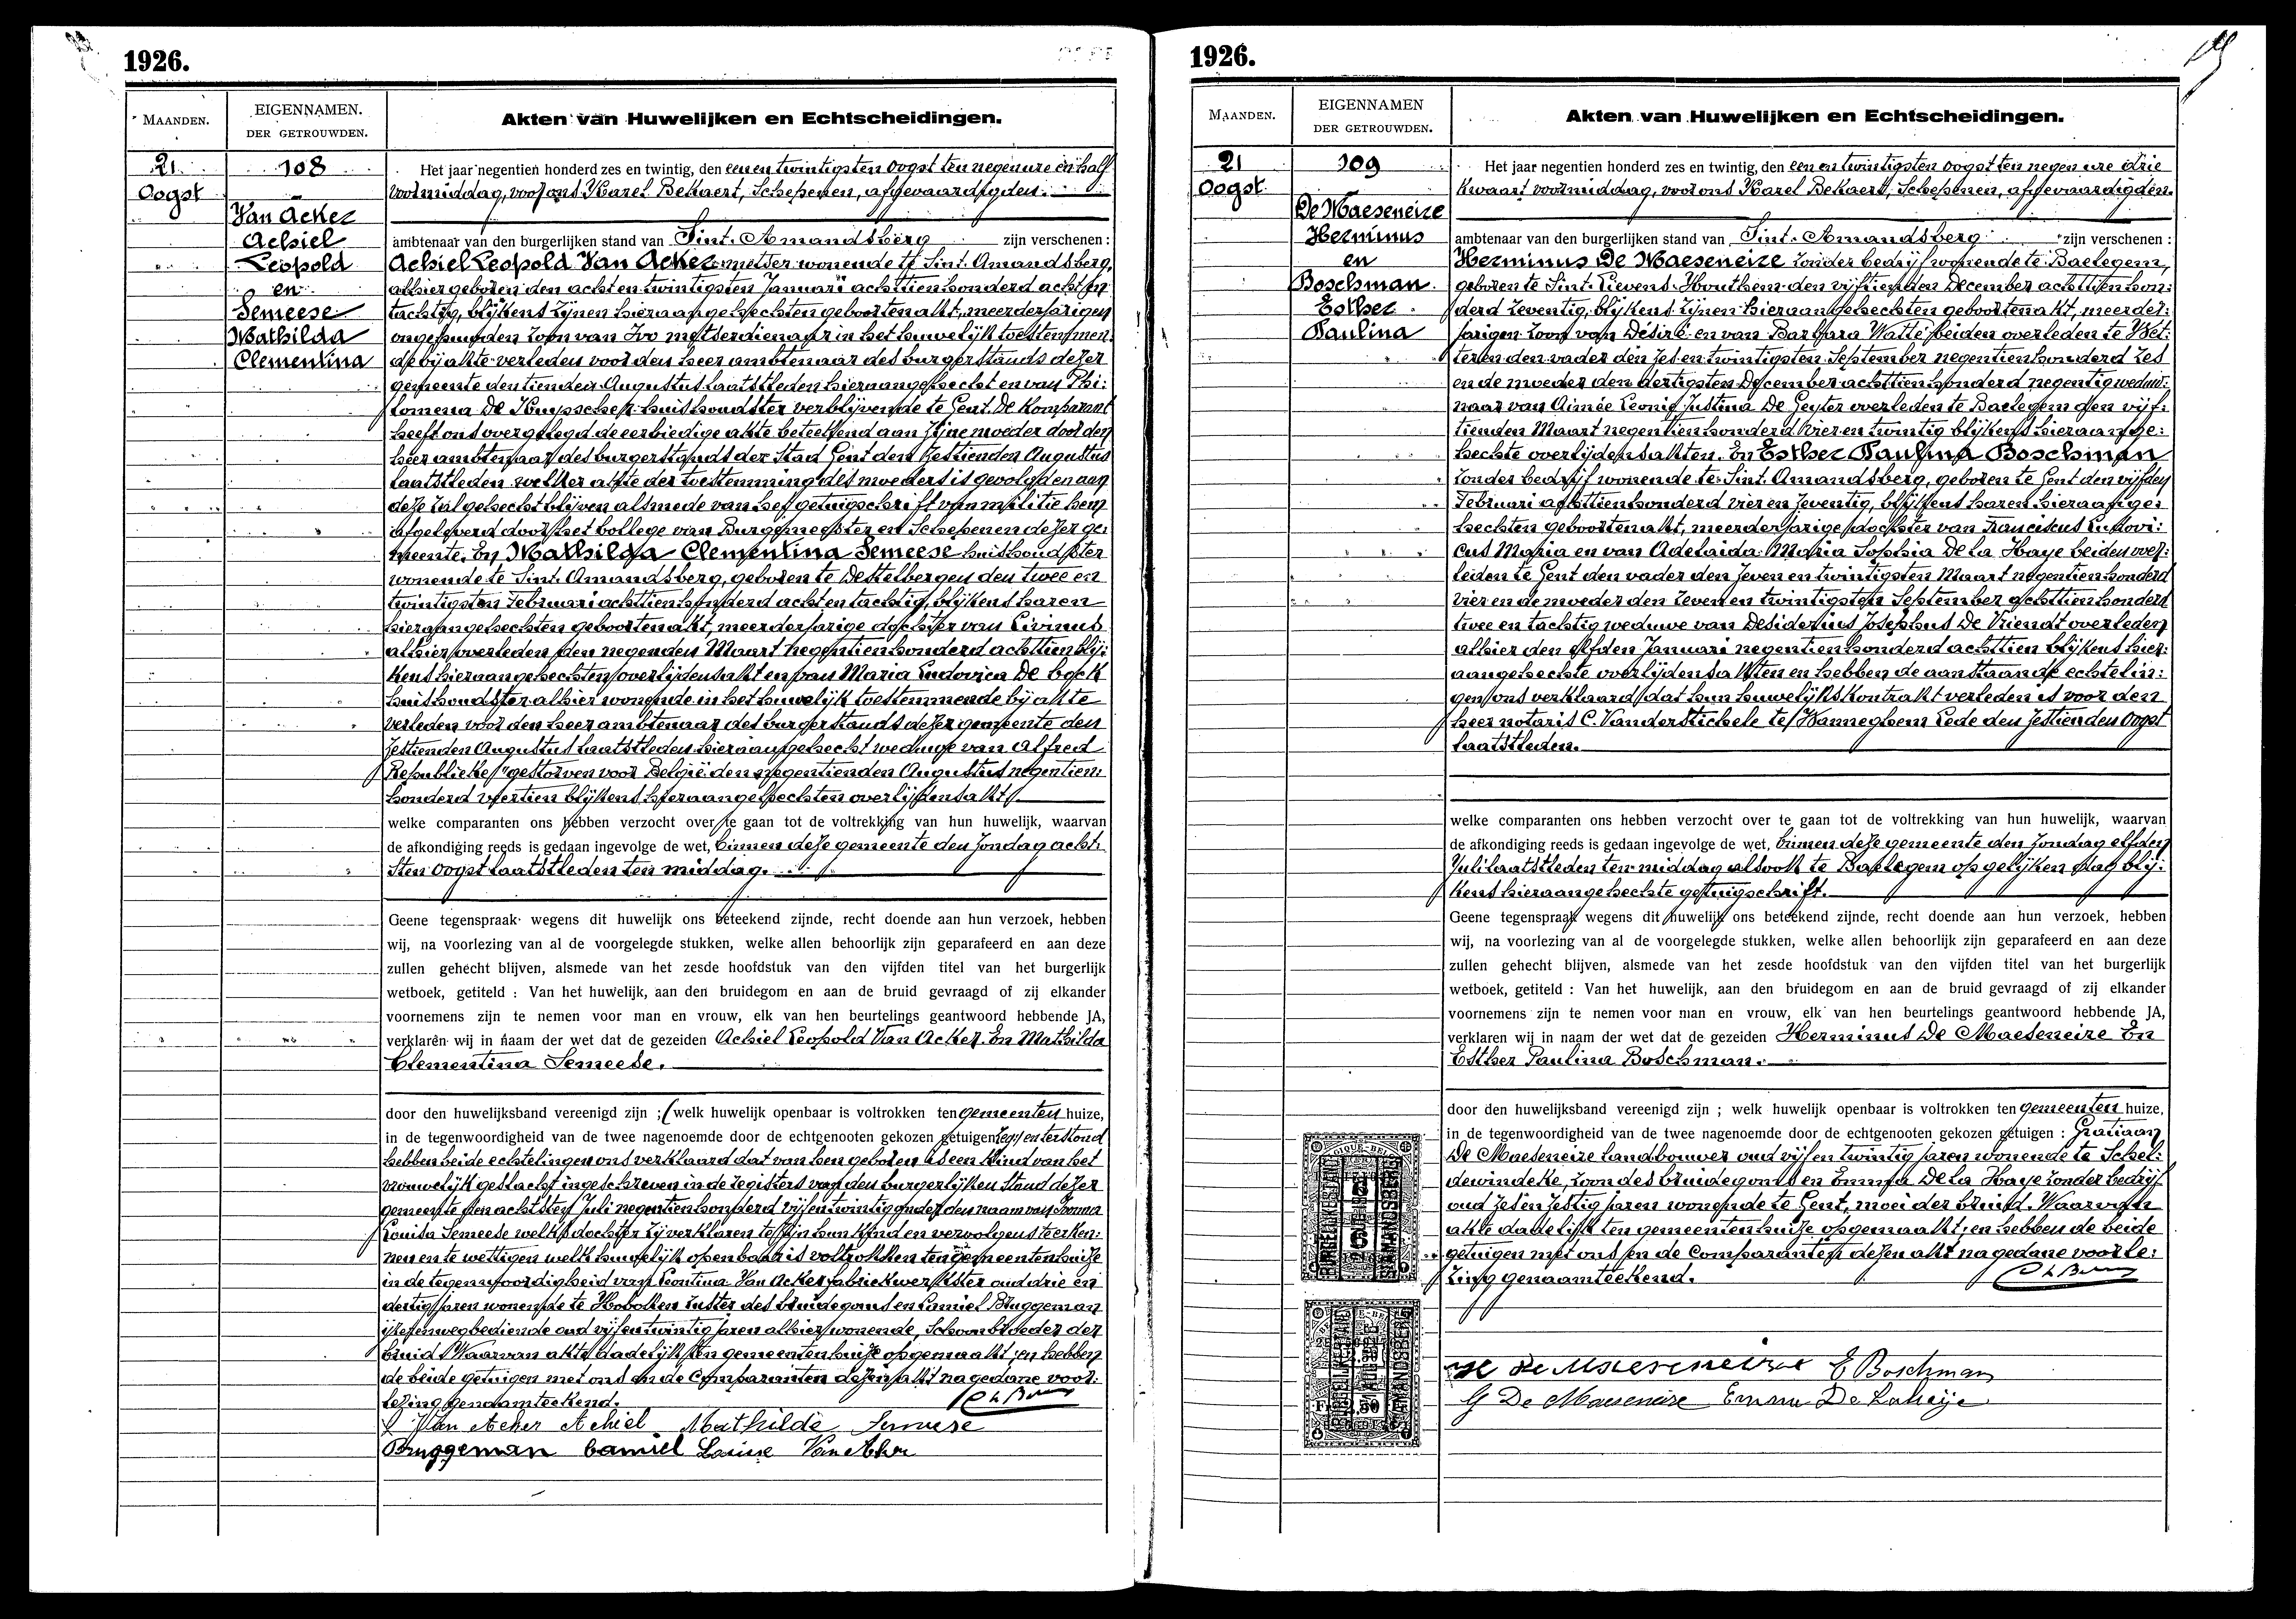 1926.
MAANDEN.
EIGENNAMEN.
DER GETROUWDEN.
Akten van Huwelijken en Echtscheidingen.
21
Oogst
108
Van Acker
Achiel
Leopold
en
Semeese
Mathilda
Clementina
Het jaar negentien honderd zes en twintig, den een en twintigsten Oogst ten negen ure en half
voormiddag, voor ons Karel Bekaert, Schepenen, afgevaardigden
ambtenaar van den burgerlijken stand van Sint-Amandsberg zijn verschenen :
Achiel Leopold Van Acker metser wonende te Sint-Amandsberg,
alhier geboren den acht en twintigsten Januari achttien honderd acht en
tachtig, blijkens zijnen hieraangehechten geboortenakt, meerderjarigen
ongehuwden zoon van Ivo metserdienaar in het huwelijk toestemmen-
de bij akte verleden voor den heer ambtenaar des burgerstands dezer
gemeente den tienden Augustus laatstleden hieraangehecht en van Phi-
lomena De Kuyssche huishoudster verblijvende te Gent. De komparant
heeft ons overgelegd de eerbiedige akte beteekend aan zijne moeder door den
heer ambtenaar des burgerstands der Stad Gent den zestienden Augustus
laatstleden welker akte der toestemming des moeders is gevolgd en aan
deze zal gehecht blijven alsmede van het getuigschrift van militie hem
afgeleverd door het kollege van Burgemeester en Schepenen dezer ge-
meente. En Mathilda Clementina Semeese huishoudster
wonende te Sint-Amandsberg, geboren te Destelbergen den twee en
twintigsten Februari achttien honderd acht en tachtig, blijkens haren
hieraangehechten geboortenakt, meerderjarige dochter van Livinus
alhier overleden den negenden Maart negentien honderd achttien blij-
kens hieraangehechten overlijdensakt en van Maria Ludovica De Bock
huishoudster alhier wonende in het huwelijk toestemmende bij akte
verleden voor den heer ambtenaar des burgerstands dezer gemeente den
zestienden Augustus laatstleden hieraangehecht weduwe van Alfred
Republieke "gestorven voor België den negentienden Augustus negentien-
honderd veertien blijkens hieraangehechten overlijdensakt.
welke comparanten ons hebben verzocht over te gaan tot de voltrekking van hun huwelijk, waarvan
de afkondiging reeds is gedaan ingevolge de wet, binnen deze gemeente den Zondag acht-
sten Oogst laatstleden ten middag.
Geene tegenspraak wegens dit huwelijk ons beteekend zijnde, recht doende aan hun verzoek, hebben
wij, na voorlezing van al de voorgelegde stukken, welke allen behoorlijk zijn geparafeerd en aan deze
zullen gehecht blijven, alsmede van het zesde hoofdstuk van den vijfden titel van het burgerlijk
wetboek, getiteld : Van het huwelijk, aan den bruidegom en aan de bruid gevraagd of zij elkander
voornemens zijn te nemen voor man en vrouw, elk van hen beurtelings geantwoord hebbende JA,
verklaren wij in naam der wet dat de gezeiden Achiel Leopold Van Acker En Mathilda
Clementina Semeese.
door den huwelijksband vereenigd zijn ; (welk huwelijk openbaar is voltrokken ten gemeenten huize,
in de tegenwoordigheid van de twee nagenoemde door de echtgenooten gekozen getuigen en terstond
hebben beide echtelingen ons verklaard dat van hen geboren is een kind van het
vrouwelijk geslacht ingeschreven in de registers van den burgerlijken stand dezer
gemeente den achtsten Juli negentien honderd vijf en twintig onder den naam van
Louisa Semeese welke dochter zij verklaren te zijn hun kind en vervolgens te erken-
nen en te wettigen welk huwelijk openbaar is voltrokken ten gemeentenhuize
in de tegenwoordigheid van Leontina Van Acker fabriekwerkster oud drie en
dertig jaren wonende te Hoboken zuster des bruidegoms en Camiel Bruggeman
ijzerenwegbediende oud vijf en twintig jaren alhier wonende, Schoonbroeder der
bruid. Waarvan akte dadelijk ten gemeentenhuize opgemaakt ; en hebben
de beide getuigen met ons en de Comparanten dezen akt na gedane voor-
lezing genaamteekend.
Van Acker Achiel Mathilde Semeese
Bruggeman Camiel Van Acker
1926.
MAANDEN.
EIGENNAMEN
DER GETROUWDEN.
Akten van Huwelijken en Echtscheidingen.
21
Oogst
109
De Maeseneire
Herminus
en
Boschman
Esther
Paulina
Het jaar negentien honderd zes en twintig, den een en twintigsten Oogst ten negen ure drie
kwaart voormiddag, voor ons Karel Bekaert, Schepenen, afgevaardigden
ambtenaar van den burgerlijken stand van Sint-Amandsberg zijn verschenen :
Herminus De Maeseneire zonder bedrijf wonende te Baelegem,
geboren te Sint-Lievens-Houthem den vijftienden December achttien hon-
derd zeventig, blijkens zijnen hieraangehechten geboortenakt, meerder-
jarigen zoon van Désiré en van Barbara Watté beiden overleden te Vet-
teren den vader den zes en twintigsten September negentien honderd zes
en de moeder den dertigsten December achttien honderd negentig weduw-
naar van Aimée Leonie Justina De Geyter overleden te Baelegem den vijf-
tienden Maart negentien honderd vier en twintig blijkens hieraange-
hechte overlijdensakten. En Esther Paulina Boschman
zonder bedrijf wonende te Sint-Amandsberg, geboren te Gent den vijfden
Februari achttien honderd vier en zeventig, blijkens haren hieraange-
hechten geboortenakt, meerderjarige dochter van Franciscus Ludovi-
cus Maria en van Adelaida Maria Sophia De la Haye beiden over-
leden te Gent den vader den zeven en twintigsten Maart negentien honderd
vier en de moeder den zeven en twintigsten September achttien honderd
twee en tachtig weduwe van Desiderius Josephus De Vriendt overleden
alhier den elfden Januari negentien honderd achttien blijkens hier-
aangehechte overlijdensakten en hebben de aanstaande echtelin-
gen ons verklaard dat hun huwelijkskontrakt verleden is voor den
heer notaris C. Vanderstichele te Wanneghem Lede den zestienden Oogst
laatstleden.
welke comparanten ons hebben verzocht over te gaan tot de voltrekking van hun huwelijk, waarvan
de afkondiging reeds is gedaan ingevolge de wet, binnen deze gemeente den Zondag elfden
Juli laatstleden ten middag alsook te Baelegem op gelijken dag blij-
kens hieraangehechte getuigschrift.
Geene tegenspraak wegens dit huwelijk ons beteekend zijnde, recht doende aan hun verzoek, hebben
wij, na voorlezing van al de voorgelegde stukken, welke allen behoorlijk zijn geparafeerd en aan deze
zullen gehecht blijven, alsmede van het zesde hoofdstuk van den vijfden titel van het burgerlijk
wetboek, getiteld : Van het huwelijk, aan den bruidegom en aan de bruid gevraagd of zij elkander
voornemens zijn te nemen voor man en vrouw, elk van hen beurtelings geantwoord hebbende JA,
verklaren wij in naam der wet dat de gezeiden Herminus De Maeseneire En
Esther Paulina Boschman.
door den huwelijksband vereenigd zijn ; welk huwelijk openbaar is voltrokken ten gemeenten huize,
in de tegenwoordigheid van de twee nagenoemde door de echtgenooten gekozen getuigen : Gratiaan
De Maeseneire landbouwer oud vijf en twintig jaren wonende te Schel-
dewindeke, zoon des bruidegoms en Emma De la Haye zonder bedrijf
oud zes en zestig jaren wonende te Gent, moei der bruid. Waarvan
akte dadelijk ten gemeentenhuize opgemaakt ; en hebben de beide
getuigen met ons en de Comparanten dezen akt na gedane voorle-
zing genaamteekend.
De Maeseneire E Boschman
G De Maeseneire Emma De Lahaije